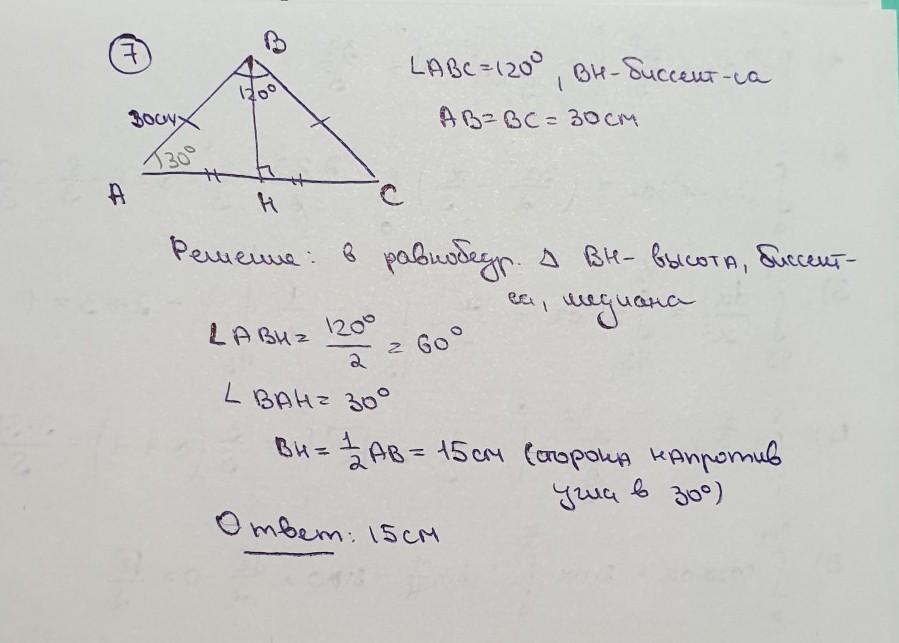 7
B
120°
30см
30°
A
H
C
∠ABC=120°, BH-биссект-са
AB=BC=30см
Решение: в равнобедр. Δ BH- высота, биссект-
са, медиана
∠ABH= 120°/2 = 60°
∠BAH= 30°
BH= 1/2 AB= 15см (сторона напротив
угла в 30°)
Ответ: 15см